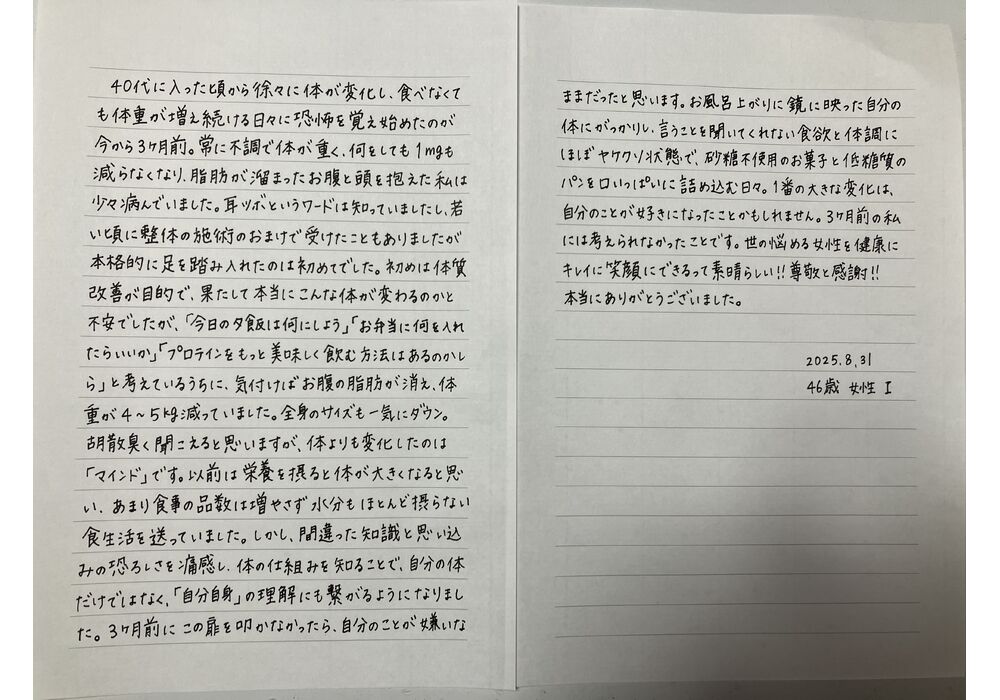 40代に入った頃から徐々に体が変化し、食べなくて
も体重が増え続ける日々に恐怖を覚え始めたのが
今から3ヶ月前。常に不調で体が重く、何をしても1mgも
減らなくなり、脂肪が溜まったお腹と頭を抱えた私は
少々病んでいました。耳ツボというワードは知っていましたし、若
い頃に整体の施術のおまけで受けたこともありましたが
本格的に足を踏み入れたのは初めてでした。初めは体質
改善が目的で、果たして本当にこんな体が変わるのかと
不安でしたが、「今日の夕飯は何にしよう」「お弁当に何を入れ
たらいいか」「プロテインをもっと美味しく飲む方法はあるのかし
ら」と考えているうちに、気付けばお腹の脂肪が消え、体
重が4～5kg減っていました。全身のサイズも一気にダウン。
胡散臭く聞こえると思いますが、体よりも変化したのは
「マインド」です。以前は栄養を摂ると体が大きくなると思
い、あまり食事の品数は増やさず水分もほとんど摂らない
食生活を送っていました。しかし、間違った知識と思い込
みの恐ろしさを痛感し、体の仕組みを知ることで、自分の体
だけではなく、「自分自身」の理解にも繋がるようになりまし
た。3ヶ月前にこの扉を叩かなかったら、自分のことが嫌いな
ままだったと思います。お風呂上がりに鏡に映った自分の
体にがっかりし、言うことを聞いてくれない食欲と体調に
ほぼヤケクソ状態で、砂糖不使用のお菓子と低糖質の
パンを口いっぱいに詰め込む日々。1番の大きな変化は、
自分のことが好きになったことかもしれません。3ヶ月前の私
には考えられなかったことです。世の悩める女性を健康に
キレイに笑顔にできるって素晴らしい!!尊敬と感謝!!
本当にありがとうございました。
2025.8.31
46歳 女性 I